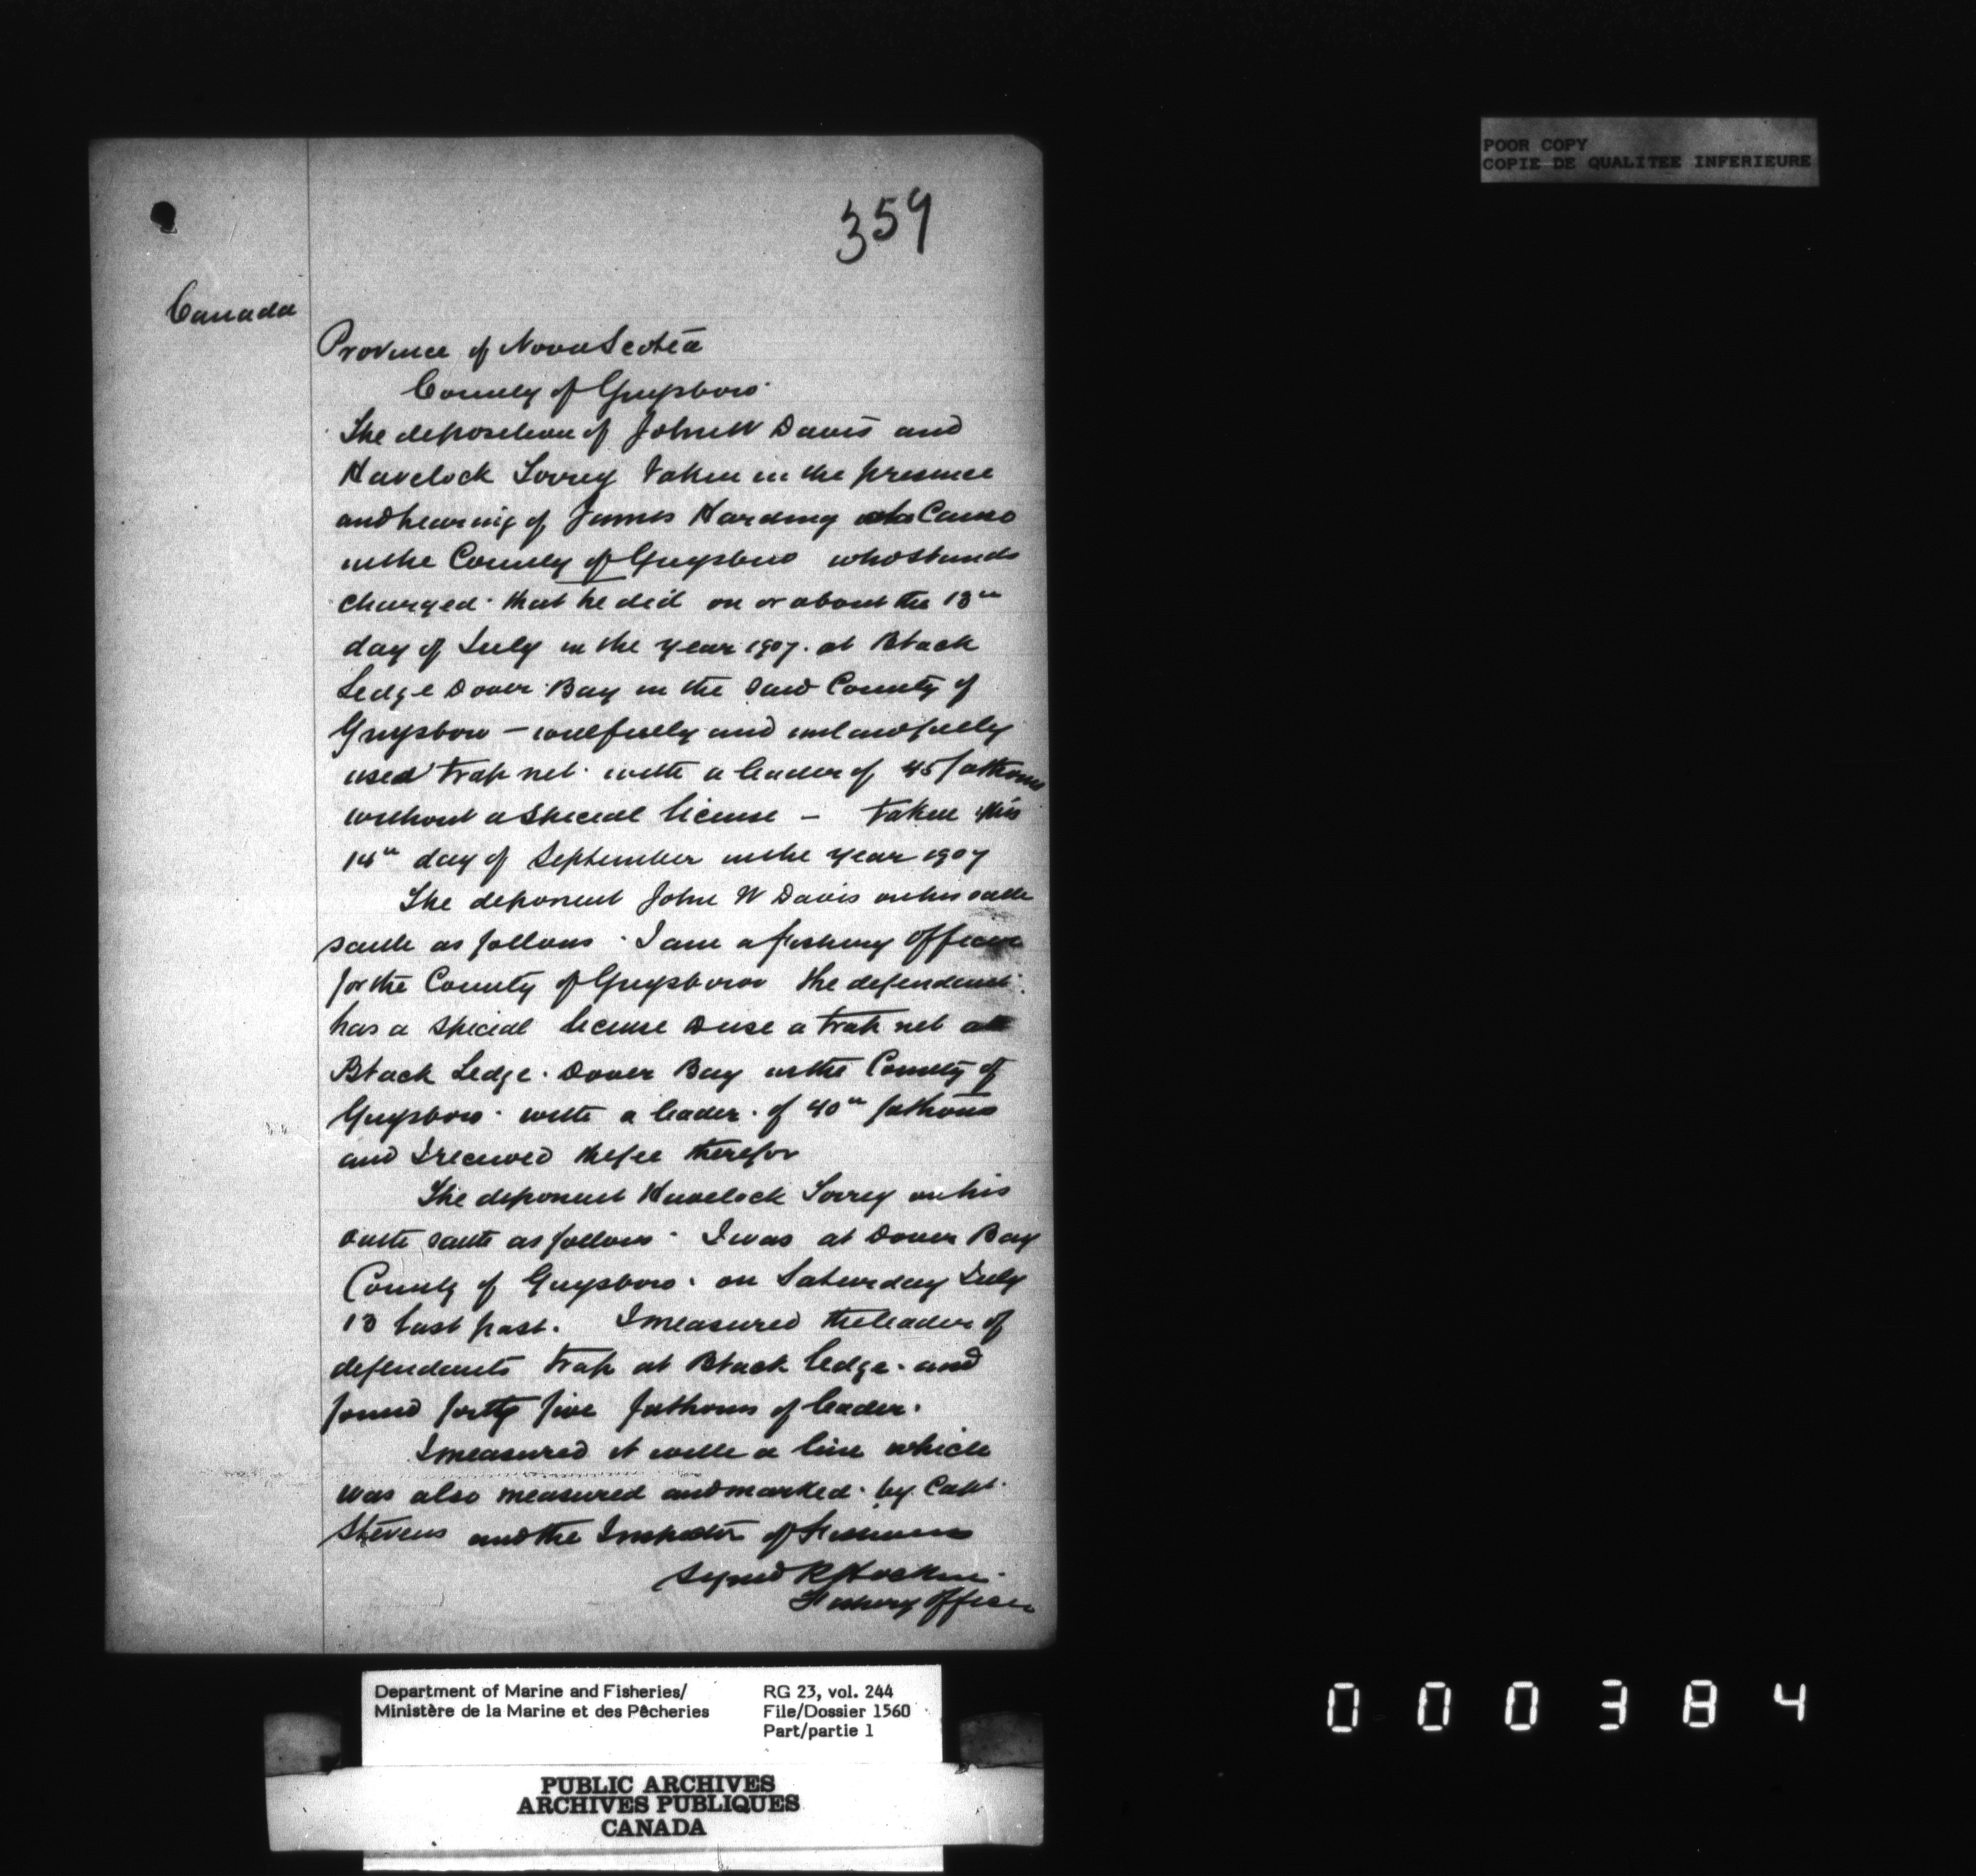 POOR COPY
COPIE DE QUALITEE INFERIEURE
359
Canada
Province of Nova Scotia
County of Guysboro
The deposition of John W Davis and
Havelock Torrey taken in the presence
and hearing of James Harding Canso
in the County of Guysboro who stands
charged that he did on or about the 13th
day of July in the year 1907. at Black
Ledge Dover Bay in the said County of
Guysboro - wilfully and unlawfully
used trap net with a leader of 45 fathoms
without a special license - taken this
14th day of September in the year 1907
The deponent John W Davis on his oath
saith as follows. I am a fishery officer
for the County of Guysboro the defendant
has a special license to use a trap net at
Black Ledge. Dover Bay in the County of
Guysboro. with a leader. of 40th fathoms
and I received the fee therefor
The deponent Havelock Torrey on his
oath saith as follows. I was at Dover Bay
County of Guysboro. on Saturday July
13 last past. I measured the leader of
defendants trap at Black ledge. and
found forty five fathoms of leader.
I measured it with a line which
was also measured and marked. by Capt.
Stevens and the Inspector of Fisheries
Signed R Hockin.
Fishery Officer
Department of Marine and Fisheries/
Ministère de la Marine et des Pêcheries
RG 23, vol. 244
File/Dossier 1560
Part/partie 1
PUBLIC ARCHIVES
ARCHIVES PUBLIQUES
CANADA
000384